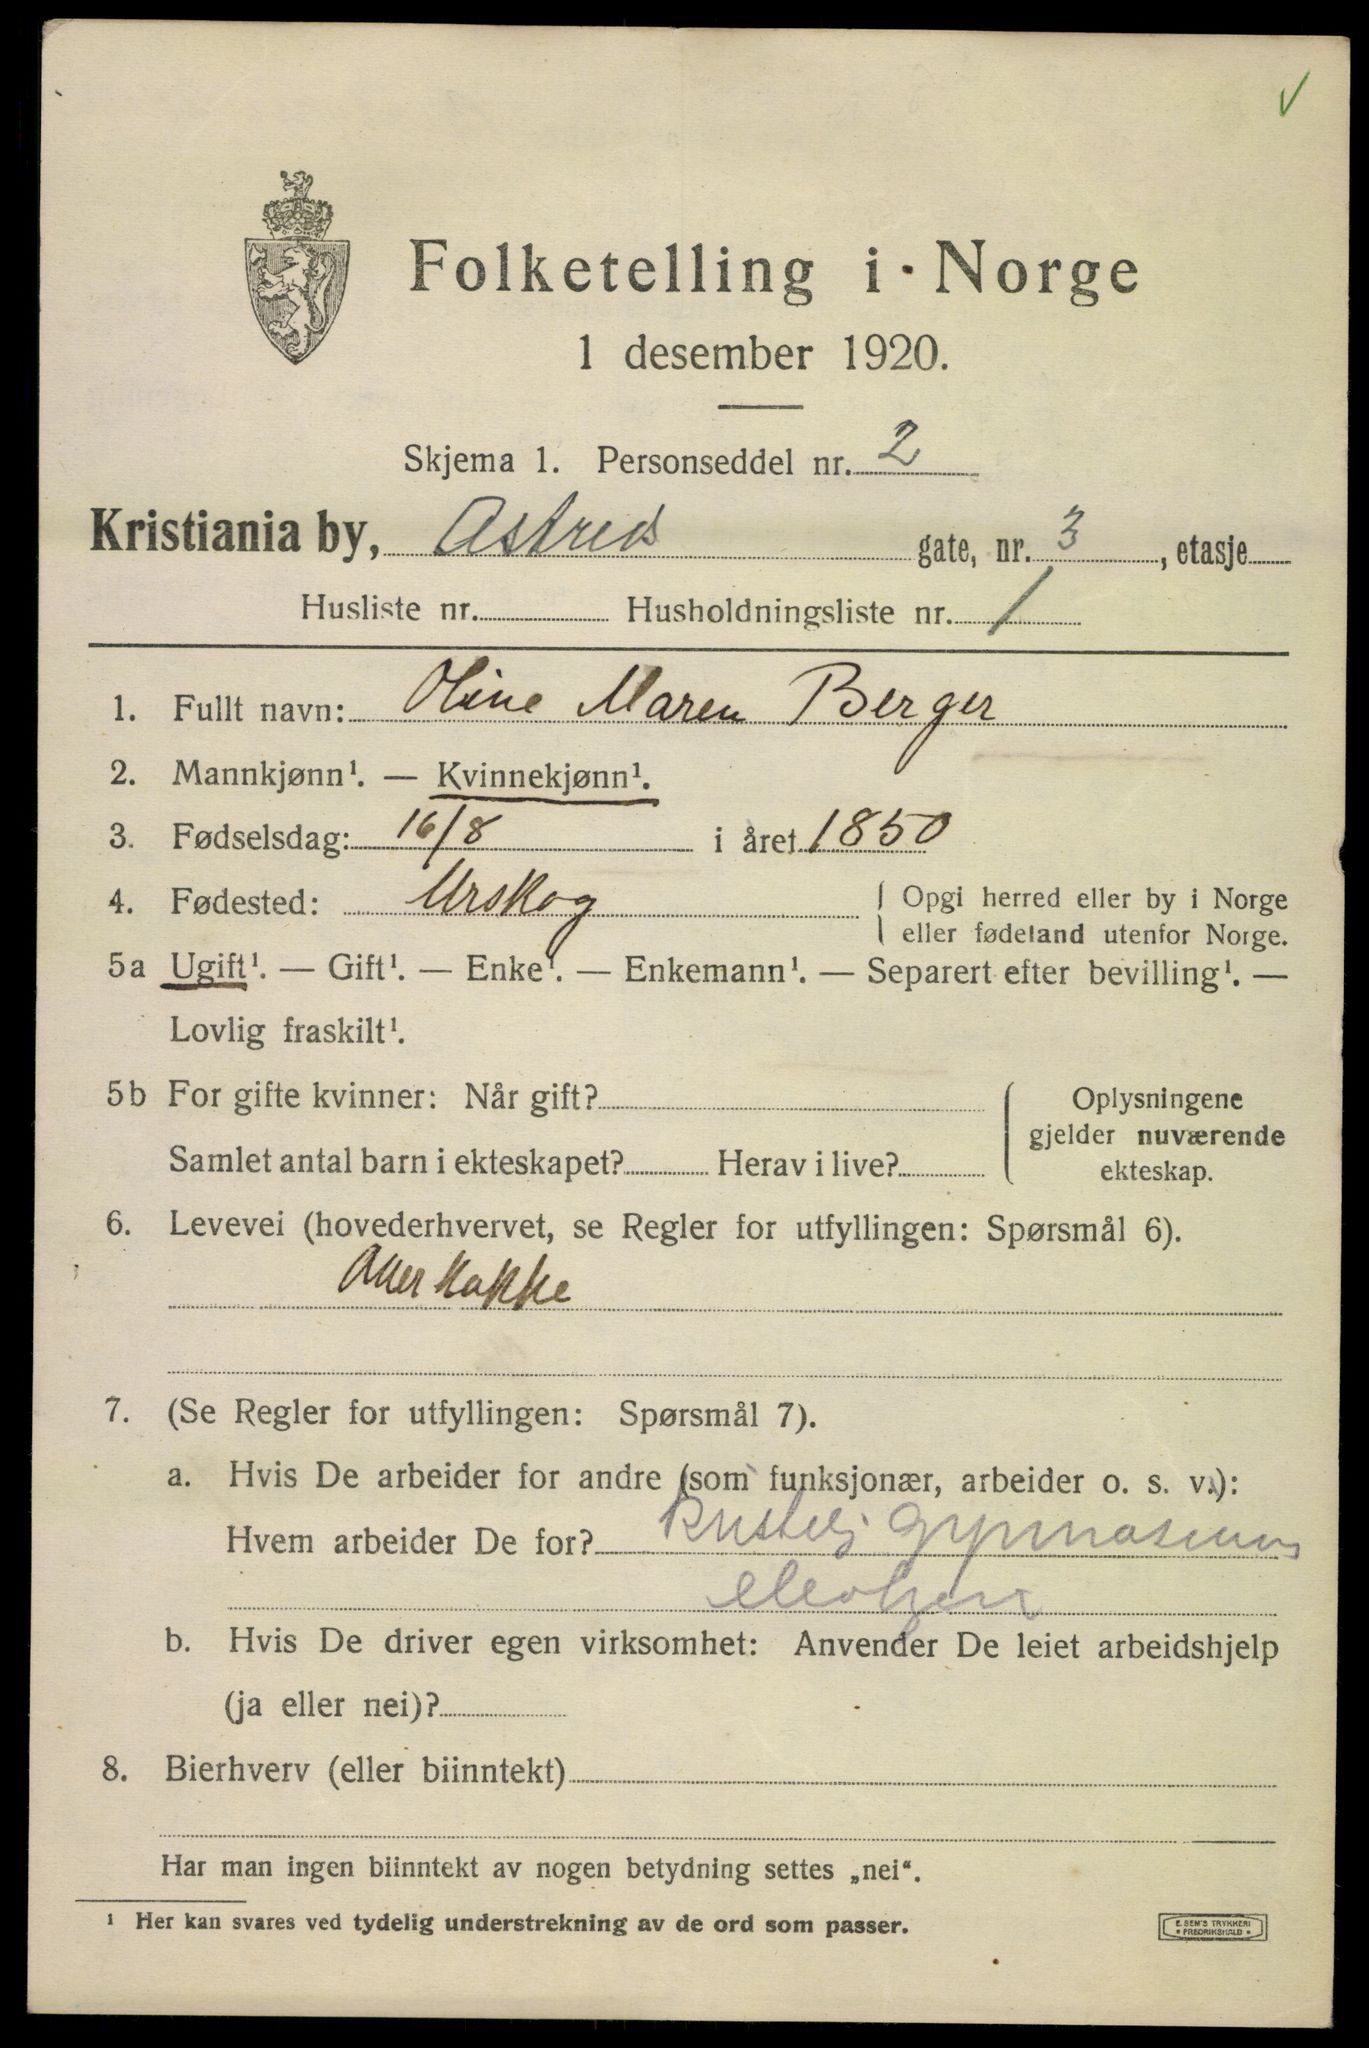 Folketelling i Norge
1 desember 1920.
Skjema 1. Personseddel nr. 2
Kristiania by, Astrids gate, nr. 3, etasje
Husliste nr. Husholdningsliste nr. 1
1. Fullt navn: Oline Maren Berger
2. Mannkjønn¹. — Kvinnekjønn¹.
3. Fødselsdag: 16/8 i året 1850
4. Fødested: Urskog { Opgi herred eller by i Norge
eller fødeland utenfor Norge.
5a Ugift¹. — Gift¹. — Enke¹. — Enkemann¹. — Separert efter bevilling¹. —
Lovlig fraskilt¹.
5b For gifte kvinner: Når gift?
Samlet antal barn i ekteskapet? Herav i live?
Oplysningene
gjelder nuværende
ekteskap.
6. Levevei (hovederhvervet, se Regler for utfyllingen: Spørsmål 6).
7. (Se Regler for utfyllingen: Spørsmål 7).
a. Hvis De arbeider for andre (som funksjonær, arbeider o. s. v.):
Hvem arbeider De for? Kristelig Gymnasium
b. Hvis De driver egen virksomhet: Anvender De leiet arbeidshjelp
(ja eller nei)?
8. Bierhverv (eller biinntekt)
Har man ingen biinntekt av nogen betydning settes „nei“.
¹ Her kan svares ved tydelig understrekning av de ord som passer.
E. SEM'S TRYKKERI
• FREDRIKSHALD •